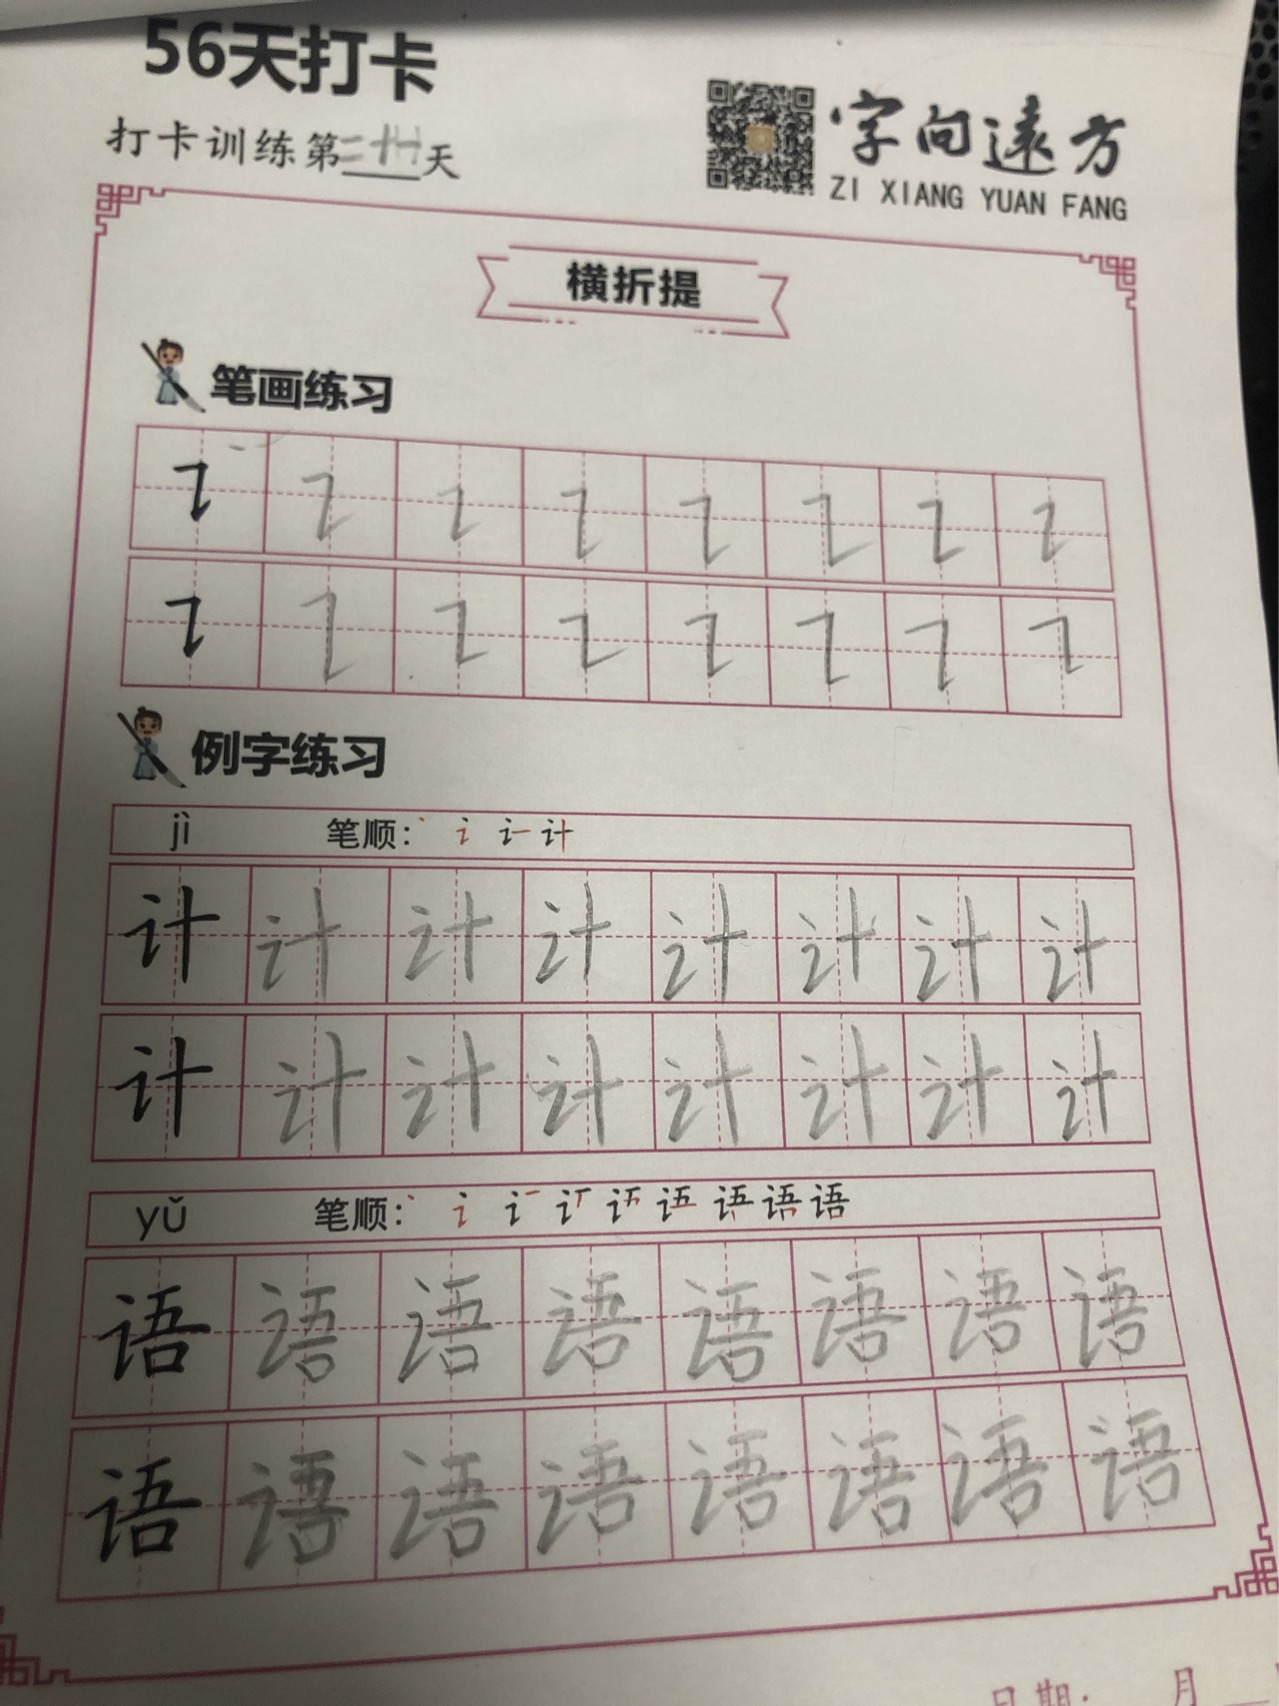 56天打卡
打卡训练第二十一天
字向遠方
ZI XIANG YUAN FANG
横折提
笔画练习
例字练习
jì 笔顺：
计 计 计 计 计 计 计 计
计 计 计 计 计 计 计 计
yǔ 笔顺： 语 语 语
语 语 语 语 语 语 语 语
语 语 语 语 语 语 语 语
日期： 月